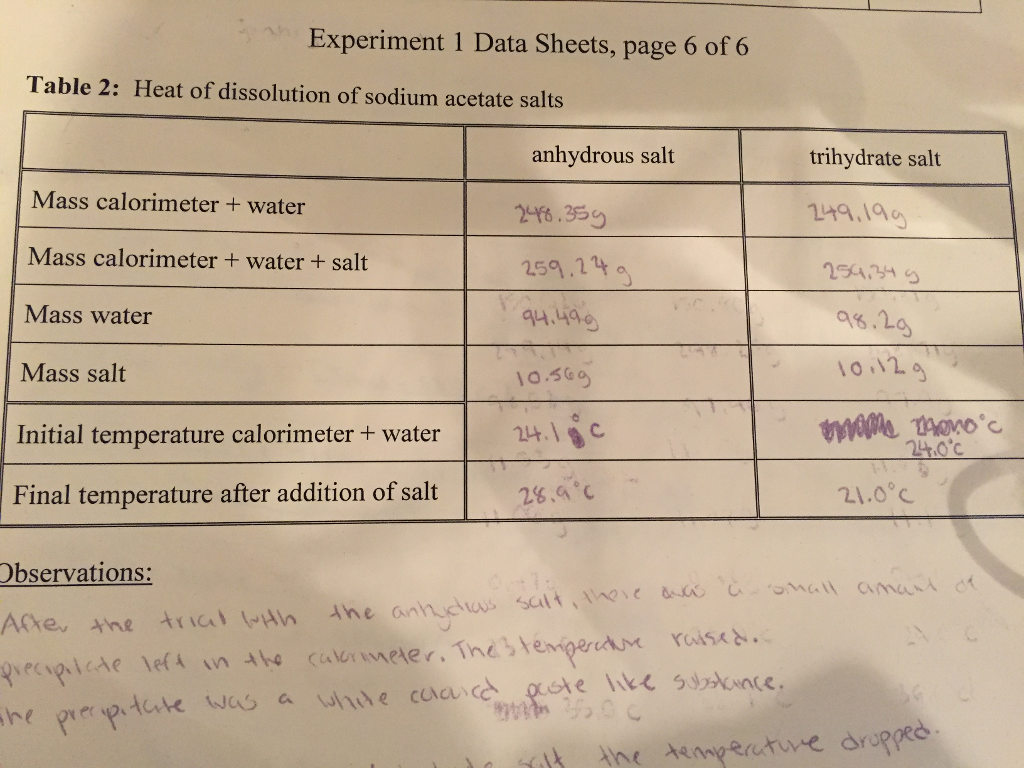 Experiment 1 Data Sheets, page 6 of 6
Table 2: Heat of dissolution of sodium acetate salts
anhydrous salt trihydrate salt
Mass calorimeter + water 248.35g 249.19g
Mass calorimeter + water + salt 259.24g 259.34g
Mass water 94.49g 98.2g
Mass salt 10.56g 10.12g
Initial temperature calorimeter + water 24.1°C °C
24.0°C
Final temperature after addition of salt 28.9°C 21.0°C
Observations:
After the trial with the anhydrous salt, there was a small amount of
precipitate left in the calorimeter. The temperature raised.
The precipitate was a white coloured paste like substance.
salt the temperature dropped.